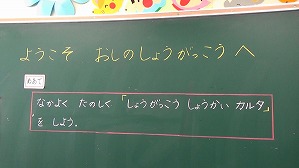 ようこそ おしのしょうがっこう へ
めあて
なかよく たのしく 「しょうがっこう しょうかい カルタ」
を しよう.